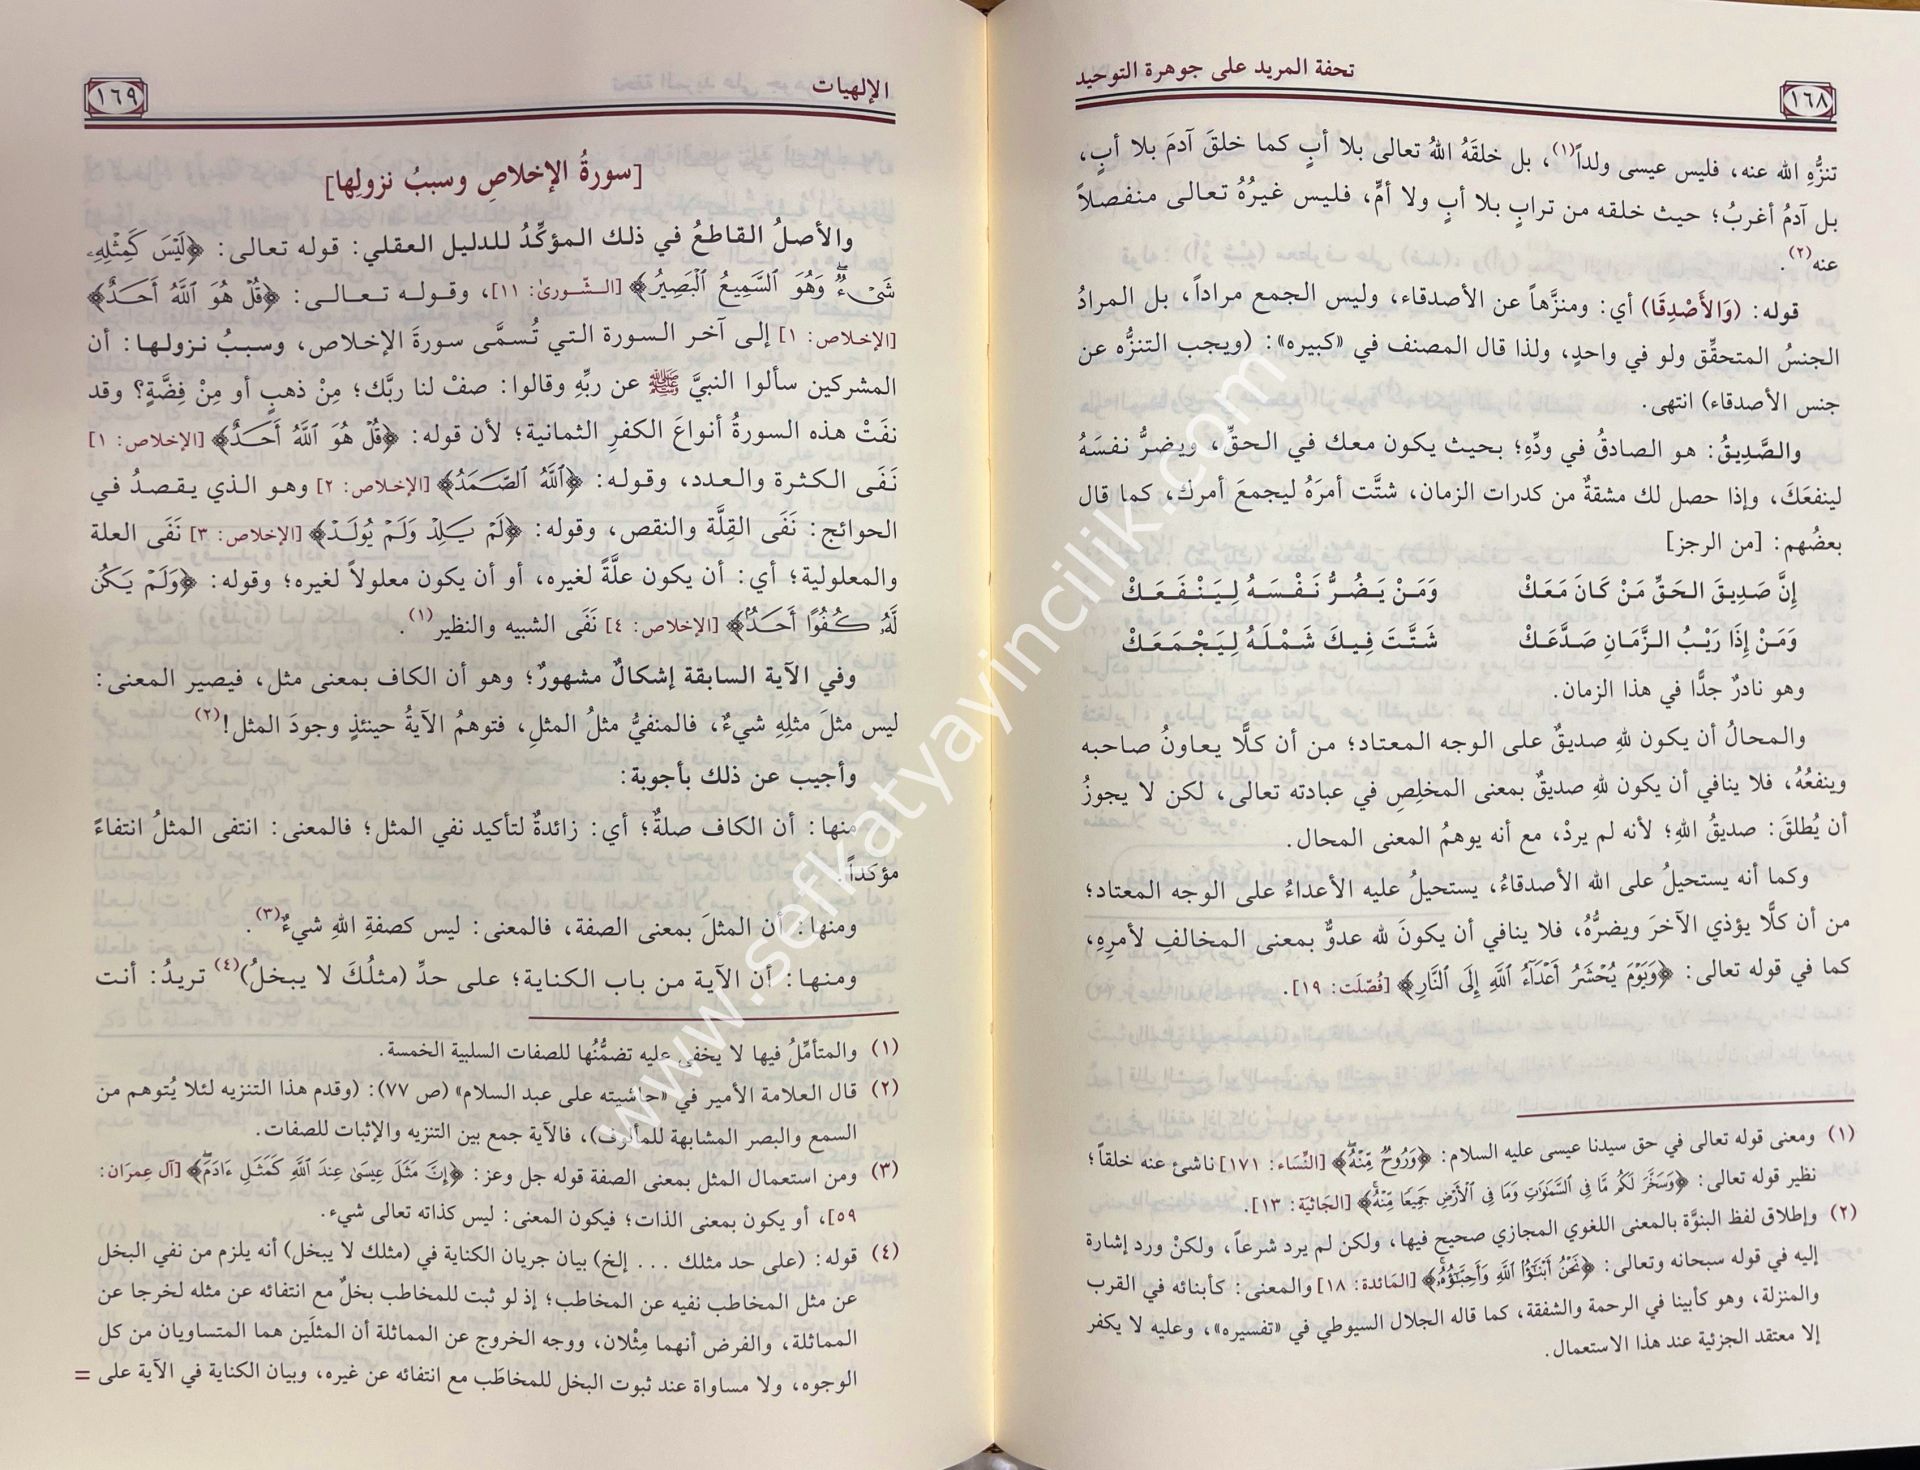 تحفة المريد على جوهرة التوحيد
١٦٨
تنزُّهِ الله عنه، فليس عيسى ولداً(١)، بل خلقَهُ اللهُ تعالى بلا أبٍ كما خلقَ آدمَ بلا أبٍ،
بل آدمُ أغربُ؛ حيث خلقه من ترابٍ بلا أبٍ ولا أمٍّ، فليس غيرُهُ تعالى منفصلاً
عنه(٢).
قوله: (وَالأَصْدِقَا) أي: ومنزَّهاً عن الأصدقاء، وليس الجمع مراداً، بل المرادُ
الجنسُ المتحقِّق ولو في واحدٍ، ولذا قال المصنف في «كبيره»: (ويجب التنزُّه عن
جنس الأصدقاء) انتهى.
والصَّدِيقُ: هو الصادقُ في ودِّهِ؛ بحيث يكون معك في الحقِّ، ويضرُّ نفسَهُ
لينفعَكَ، وإذا حصل لك مشقةٌ من كدرات الزمان، شتَّت أمرَهُ ليجمعَ أمرك، كما قال
بعضُهم: [من الرجز]
إِنَّ صَدِيقَ الحَقِّ مَنْ كَانَ مَعَكْ وَمَنْ يَضُرُّ نَفْسَهُ لِيَنْفَعَكْ
وَمَنْ إِذَا رَيْبُ الزَّمَانِ صَدَّعَكْ شَتَّتَ فِيكَ شَمْلَهُ لِيَجْمَعَكْ
وهو نادرٌ جدًّا في هذا الزمان.
والمحالُ أن يكون للهِ صديقٌ على الوجه المعتاد؛ من أن كلًّا يعاونُ صاحبه
وينفعُهُ، فلا ينافي أن يكون للهِ صديقٌ بمعنى المخلِصِ في عبادته تعالى، لكن لا يجوزُ
أن يُطلقَ: صديقُ اللهِ؛ لأنه لم يردْ، مع أنه يوهمُ المعنى المحال.
وكما أنه يستحيلُ على الله الأصدقاءُ، يستحيلُ عليه الأعداءُ على الوجه المعتاد؛
من أن كلًّا يؤذي الآخرَ ويضرُّهُ، فلا ينافي أن يكونَ لله عدوٌّ بمعنى المخالفِ لأمرِهِ،
كما في قوله تعالى: ﴿وَيَوْمَ يُحْشَرُ أَعْدَآءُ ٱللَّهِ إِلَى ٱلنَّارِ﴾ [فُصِّلَت: ١٩].
(١) ومعنى قوله تعالى في حق سيدنا عيسى عليه السلام: ﴿وَرُوحٌ مِّنْهُ﴾ [النِّسَاء: ١٧١] ناشئ عنه خلقاً؛
نظير قوله تعالى: ﴿وَسَخَّرَ لَكُم مَّا فِى ٱلسَّمَٰوَٰتِ وَمَا فِى ٱلْأَرْضِ جَمِيعًا مِّنْهُ﴾ [الجَاثيَة: ١٣].
(٢) وإطلاق لفظ البنوَّة بالمعنى اللغوي المجازي صحيح فيها، ولكن لم يرد شرعاً، ولكنْ ورد إشارة
إليه في قوله سبحانه وتعالى: ﴿نَحْنُ أَبْنَٰٓؤُا۟ ٱللَّهِ وَأَحِبَّٰٓؤُهُ﴾ [المَائدة: ١٨] والمعنى: كأبنائه في القرب
والمنزلة، وهو كأبينا في الرحمة والشفقة، كما قاله الجلال السيوطي في «تفسيره»، وعليه لا يكفر
إلا معتقد الجزئية عند هذا الاستعمال.
الإلهيات
١٦٩
[سورةُ الإخلاصِ وسببُ نزولِها]
والأصلُ القاطعُ في ذلك المؤكِّدُ للدليل العقلي: قوله تعالى: ﴿لَيْسَ كَمِثْلِهِۦ
شَىْءٌ وَهُوَ ٱلسَّمِيعُ ٱلْبَصِيرُ﴾ [الشّورى: ١١]، وقوله تعالى: ﴿قُلْ هُوَ ٱللَّهُ أَحَدٌ﴾
[الإخلاص: ١] إلى آخر السورة التي تُسمَّى سورةَ الإخلاص، وسببُ نزولها: أن
المشركين سألوا النبيَّ ﷺ عن ربِّهِ وقالوا: صفْ لنا ربَّك؛ مِنْ ذهبٍ أو مِنْ فِضَّةٍ؟ وقد
نفَتْ هذه السورةُ أنواعَ الكفرِ الثمانية؛ لأن قوله: ﴿قُلْ هُوَ ٱللَّهُ أَحَدٌ﴾ [الإخلاص: ١]
نَفَى الكثرة والعدد، وقوله: ﴿ٱللَّهُ ٱلصَّمَدُ﴾ [الإخلاص: ٢] وهو الذي يقصدُ في
الحوائج: نَفَى القِلَّة والنقص، وقوله: ﴿لَمْ يَلِدْ وَلَمْ يُولَدْ﴾ [الإخلاص: ٣] نَفَى العلة
والمعلولية؛ أي: أن يكون علَّةً لغيره، أو أن يكون معلولاً لغيره؛ وقوله: ﴿وَلَمْ يَكُن
لَّهُۥ كُفُوًا أَحَدٌۢ﴾ [الإخلاص: ٤] نَفَى الشبيه والنظير(١).
وفي الآية السابقة إشكالٌ مشهورٌ؛ وهو أن الكاف بمعنى مثل، فيصير المعنى:
ليس مثلَ مثلِهِ شيءٌ، فالمنفيُّ مثلُ المثلِ، فتوهمُ الآيةُ حينئذٍ وجودَ المثل!(٢)
وأجيب عن ذلك بأجوبة:
منها: أن الكاف صلةٌ؛ أي: زائدةٌ لتأكيد نفي المثل؛ فالمعنى: انتفى المثلُ انتفاءً
مؤكداً.
ومنها: أن المثلَ بمعنى الصفة، فالمعنى: ليس كصفةِ اللهِ شيءٌ(٣).
ومنها: أن الآية من باب الكناية؛ على حدِّ (مثلُكَ لا يبخلُ)(٤) تريدُ: أنت
(١) والمتأمِّلُ فيها لا يخفى عليه تضمُّنُها للصفات السلبية الخمسة.
(٢) قال العلامة الأمير في «حاشيته على عبد السلام» (ص ٧٧): (وقدم هذا التنزيه لئلا يُتوهم من
السمع والبصر المشابهة للمألوف)، فالآية جمع بين التنزيه والإثبات للصفات.
(٣) ومن استعمال المثل بمعنى الصفة قوله جل وعز: ﴿إِنَّ مَثَلَ عِيسَىٰ عِندَ ٱللَّهِ كَمَثَلِ ءَادَمَ﴾ [آل عِمرَان:
٥٩]، أو يكون بمعنى الذات؛ فيكون المعنى: ليس كذاته تعالى شيء.
(٤) قوله: (على حد مثلك ... إلخ) بيان جريان الكناية في (مثلك لا يبخل) أنه يلزم من نفي البخل
عن مثل المخاطب نفيه عن المخاطب؛ إذ لو ثبت للمخاطب بخلٌ مع انتفائه عن مثله لخرجا عن
المماثلة، والفرض أنهما مِثْلان، ووجه الخروج عن المماثلة أن المثلَين هما المتساويان من كل
الوجوه، ولا مساواة عند ثبوت البخل للمخاطَب مع انتفائه عن غيره، وبيان الكناية في الآية على =
www.sefkatyayincilik.com